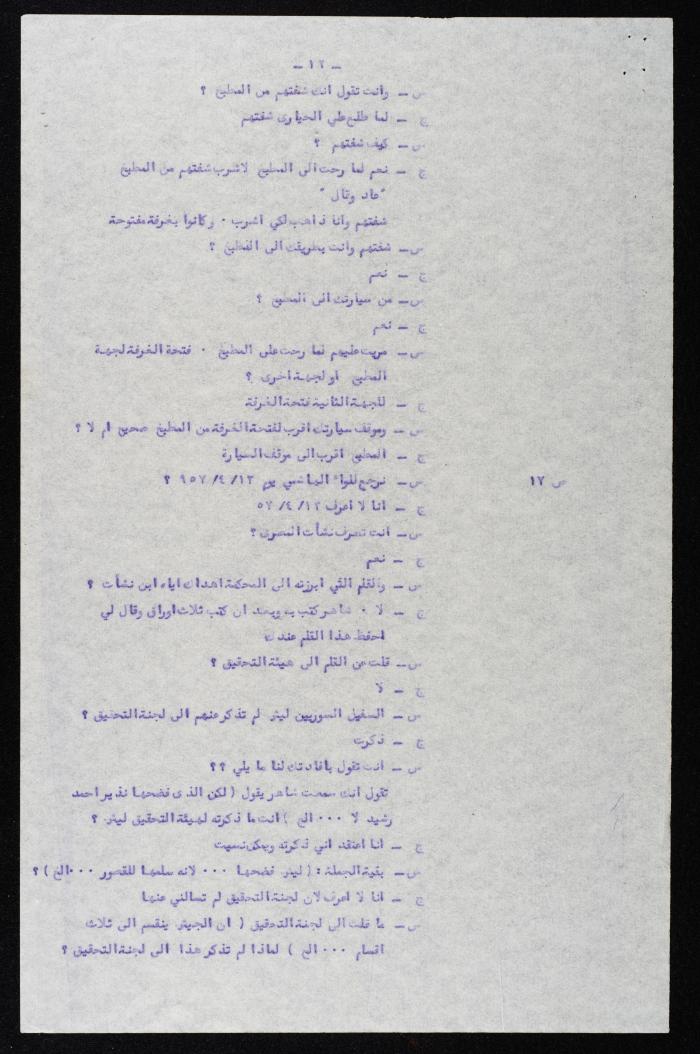 - ١٢ -
س - وانت تقول انك شفتهم من المطبخ ؟
ج - لما طلع علي الحيارى شفتهم
س - كيف شفتهم ؟
ج - نعم لما رحت الى المطبخ لاشرب شفتهم من المطبخ
" عاد وقال "
شفتهم وانا ذاهب لكي اشرب ٠ وكانوا بغرفة مفتوحة
س - شفتهم وانت بطريقك الى المطبخ ؟
ج - نعم
س - من سيارتك الى المطبخ ؟
ج - نعم
س - مريت عليهم لما رحت على المطبخ ٠ فتحة الغرفة لجهة
المطبخ او لجهة اخرى ؟
ج - للجهة الثانية فتحة الغرفة
س - وموقف سيارتك اقرب لفتحة الغرفة من المطبخ صحيح ام لا ؟
ج - المطبخ اقرب الى موقف السيارة
ص ١٧ س - نرجع للواء الهاشمي يوم ١٣/ ٤/ ٩٥٧ ؟
ج - انا لا اعرف ١٣/ ٤/ ٥٧
س - انت تعرف نشأت المصرى ؟
ج - نعم
س - والقلم التي ابرزته الى المحكمة اهداك اياه ابن نشأت ؟
ج - لا ٠ شاهر كتب به وبعد ان كتب ثلاث اوراق وقال لي
احفظ هذا القلم عندك
س - قلت عن القلم الى هيئة التحقيق ؟
ج - لا
س - السفيل السوريين ليش لم تذكر عنهم الى لجنة التحقيق ؟
ج - ذكرت
س - انت تقول بافادتك لنا ما يلي ؟؟
تقول انك سمعت شاهر يقول ( لكن الذى فضحها نذير احمد
رشيد لا ٠٠٠ الخ ) انت ما ذكرته لهيئة التحقيق ليش ؟
ج - انا اعتقد اني ذكرته ويمكن نسيت
س - بقية الجملة : ( ليش فضحها ٠٠٠ لانه سلمها للقصور ٠٠٠الخ ) ؟
ج - انا لا اعرف لان لجنة التحقيق لم تسالني عنها
س - ما قلت الى لجنة التحقيق ( ان الجيش ينقسم الى ثلاث
اقسام ٠٠٠ الخ ) لماذا لم تذكر هذا الى لجنة التحقيق ؟